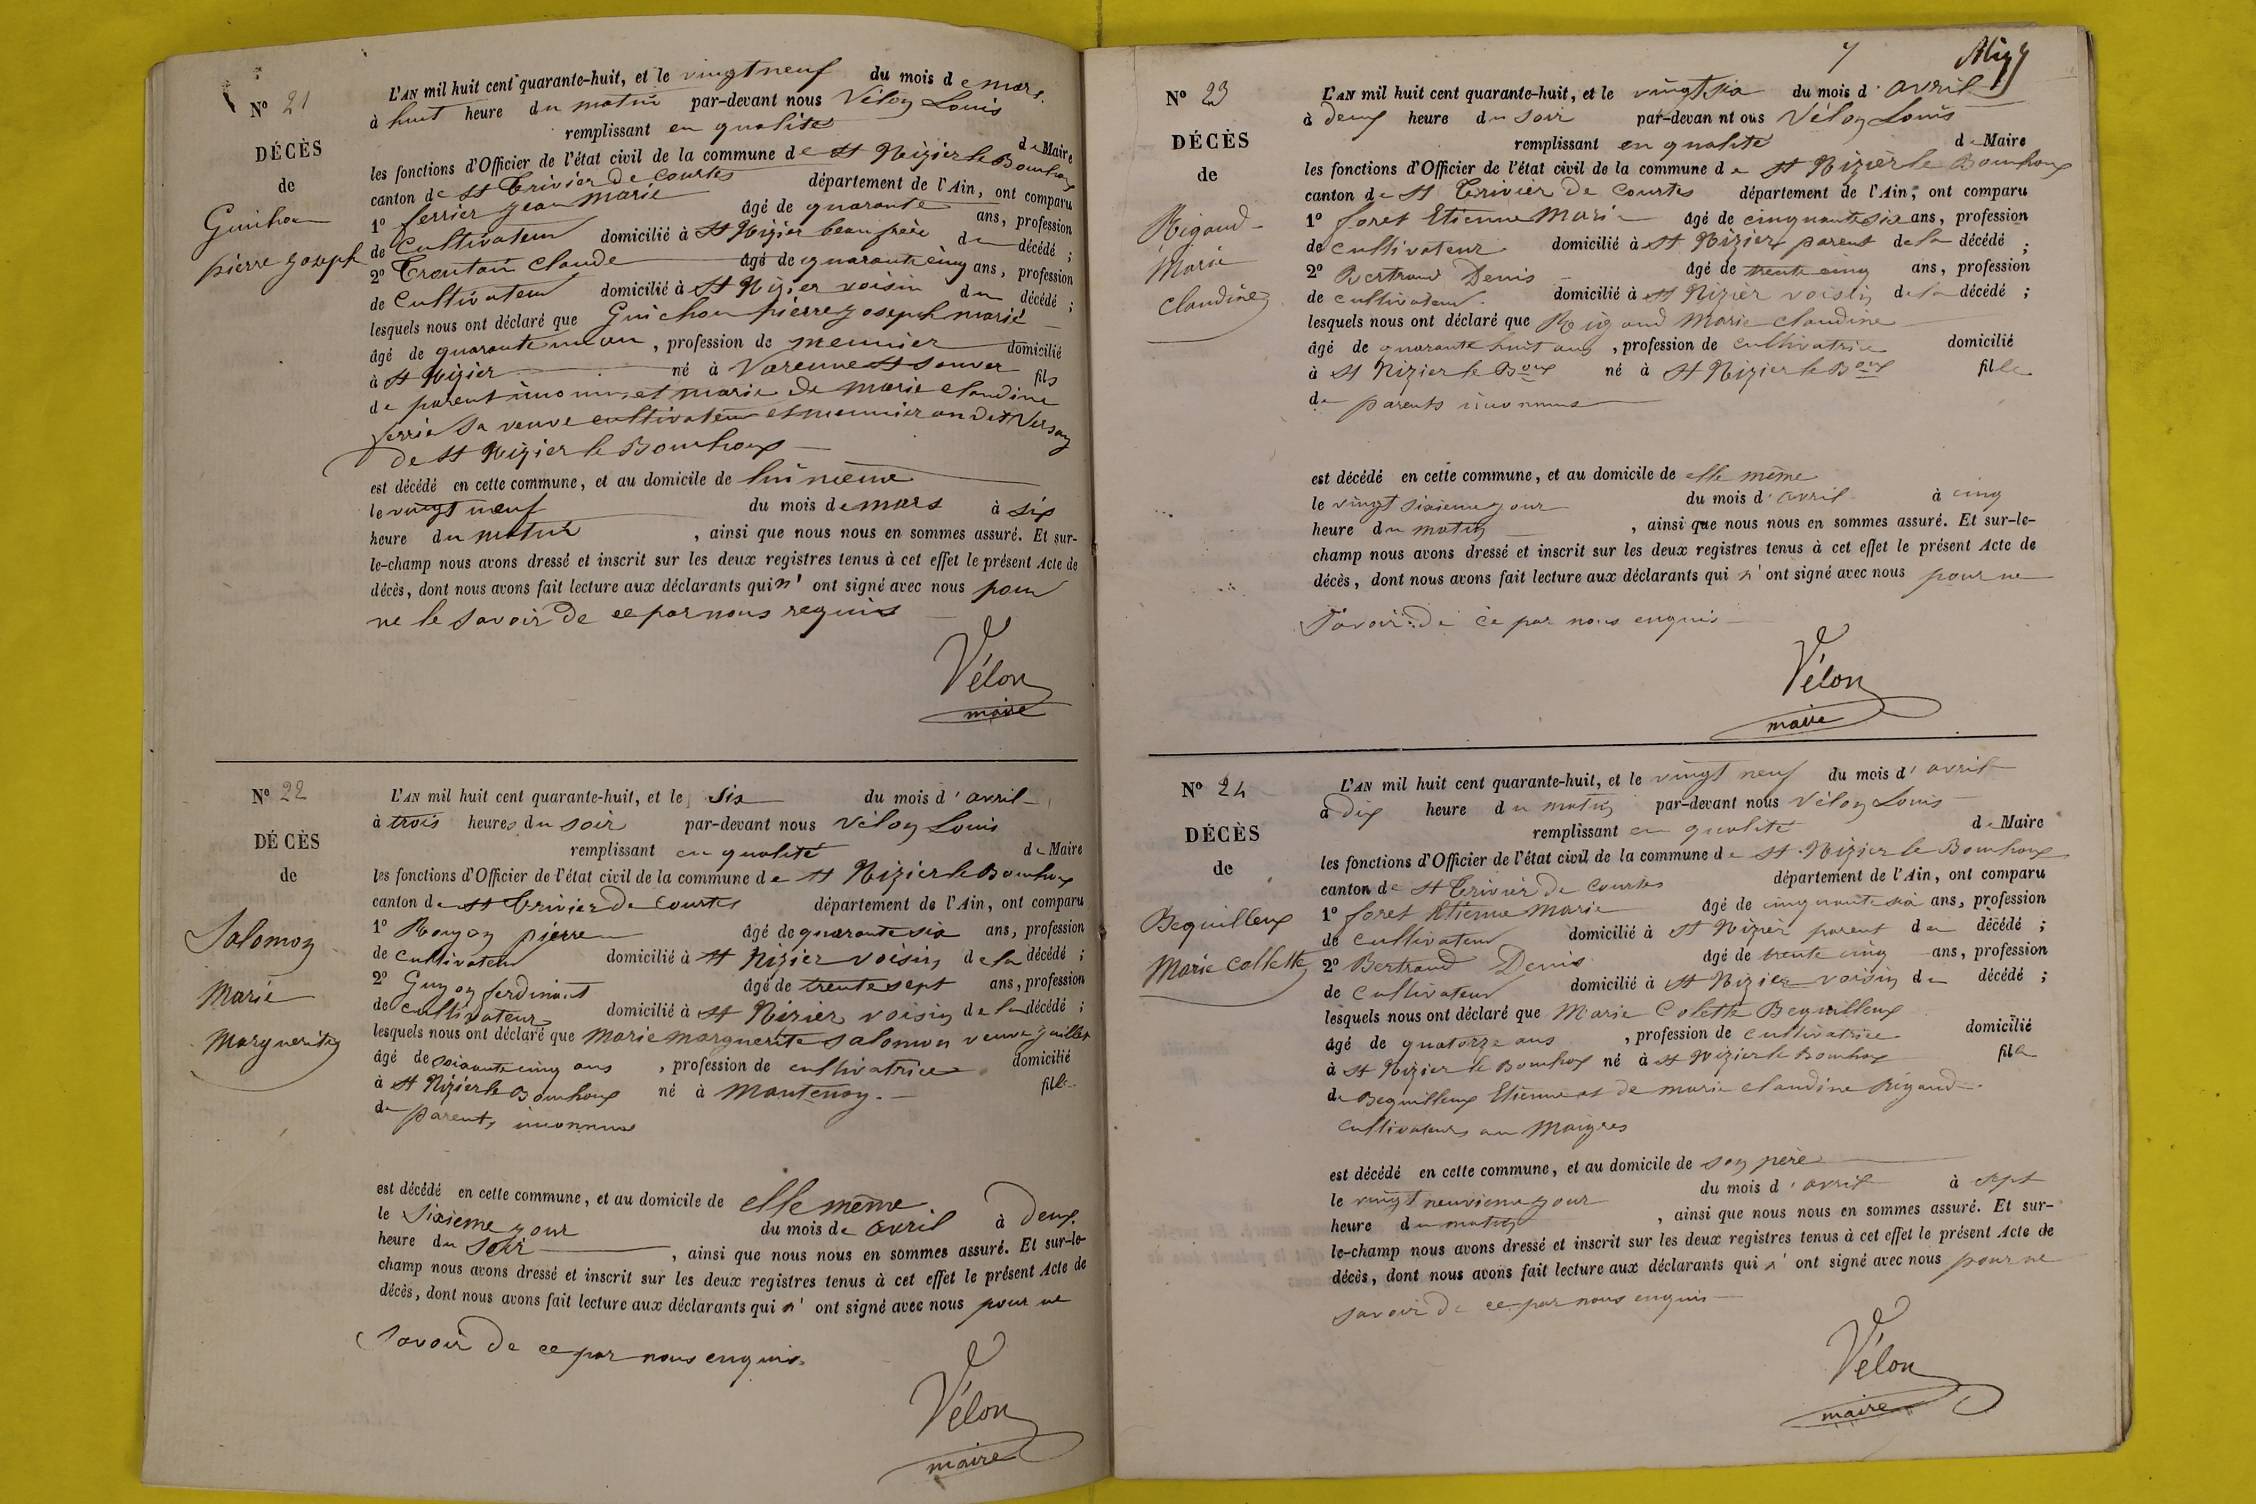 N° 21
DÉCÈS
de
Guichon
pierre joseph
L'AN mil huit cent quarante-huit, et le vingt neuf du mois de mars
à huit heure du matin par-devant nous Vélon Louis
remplissant en qualité de Maire
les fonctions d'Officier de l'état civil de la commune de St Nizier le Bouchoux
canton de St Trivier de Courtes département de l'Ain, ont comparu
1° ferrier jean marie âgé de quarante ans, profession
de cultivateur domicilié à St Nizier beau frère du décédé ;
2° Trontain Claude âgé de quarante cinq ans, profession
de cultivateur domicilié à St Nizier voisin du décédé ;
lesquels nous ont déclaré que Guichon pierre joseph marié
âgé de quarante un an, profession de meunier domicilié
à St Nizier né à Varenne St Sauver fils
de parent inconnus et marie de marie claudine
ferrier sa veuve cultivateur et meunier au dit
de St Nizier le Bouchoux
est décédé en cette commune, et au domicile de lui même
le vingt neuf du mois de mars à six
heure du matin, ainsi que nous nous en sommes assuré. Et sur-
le-champ nous avons dressé et inscrit sur les deux registres tenus à cet effet le présent Acte de
décès, dont nous avons fait lecture aux déclarants qui n' ont signé avec nous pour
ne le savoir de ce par nous requis
Vélon
maire
N° 22
DÉCÈS
de
Salomon
Marie
Marguerite
L'AN mil huit cent quarante-huit, et le six du mois d'avril
à trois heures du soir par-devant nous Vélon Louis
remplissant en qualité de Maire
les fonctions d'Officier de l'état civil de la commune de St Nizier le Bouchoux
canton de St Trivier de Courtes département de l'Ain, ont comparu
1° Rouyon pierre âgé de quarante six ans, profession
de cultivateur domicilié à St Nizier voisin de la décédé ;
2° Guyon ferdinant âgé de trente sept ans, profession
de cultivateur domicilié à St Nizier voisin de la décédé ;
lesquels nous ont déclaré que Marie marguerite salomon veuve
âgé de soixante cinq ans, profession de cultivatrice domicilié
à St Nizier le Bouhoux né à Mantenay. fille
de parents inconnus
est décédé en cette commune, et au domicile de elle même
le sixieme jour du mois de avril à deux
heure du soir, ainsi que nous nous en sommes assuré. Et sur-le-
champ nous avons dressé et inscrit sur les deux registres tenus à cet effet le présent Acte de
décès, dont nous avons fait lecture aux déclarants qui n' ont signé avec nous pour ne
savoir de ce par nous enquis.
Vélon
maire
7
N° 23
DÉCÈS
de
Rigaud
Marie
claudine
L'AN mil huit cent quarante-huit, et le vingt six du mois d'avril
à deux heure du soir par-devan nt ous Vélon Louis
remplissant en qualité de Maire
les fonctions d'Officier de l'état civil de la commune de St Nizier le Bouhoux
canton de St Trivier de Courtes département de l'Ain, ont comparu
1° foret Etienne Marie âgé de cinquante six ans, profession
de cultivateur domicilié à St Nizier parent de la décédé ;
2° Bertrand Denis âgé de trente cinq ans, profession
de cultivateur. domicilié à St Nizier voisin de la décédé ;
lesquels nous ont déclaré que Rigaud Marie claudine
âgé de quarante huit ans, profession de cultivatrice domicilié
à St Nizier le Boux né à St Nizier le Boux fille
de parents inconnus
est décédé en cette commune, et au domicile de elle même
le vingt sixieme jour du mois d'avril à cinq
heure du matin, ainsi que nous nous en sommes assuré. Et sur-le-
champ nous avons dressé et inscrit sur les deux registres tenus à cet effet le présent Acte de
décès, dont nous avons fait lecture aux déclarants qui n' ont signé avec nous pour ne
savoir de ce par nous enquis
Vélon
maire
N° 24
DÉCÈS
de
Bequilleux
Marie Collette
L'AN mil huit cent quarante-huit, et le vingt neuf du mois d'avril
à dix heure du matin par-devant nous Vélon Louis
remplissant en qualité de Maire
les fonctions d'Officier de l'état civil de la commune de St Nizier le Bouhoux
canton de St Trivier de Courtes département de l'Ain, ont comparu
1° foret Etienne Marie âgé de cinquante six ans, profession
de cultivateur domicilié à St Nizier parent du décédé ;
2° Bertrand Denis âgé de trente cinq ans, profession
de cultivateur domicilié à St Nizier voisin du décédé ;
lesquels nous ont déclaré que Marie Colette Bequilleux
âgé de quatorze ans, profession de cultivatrice domicilié
à St Nizier le Bouhoux né à St Nizier le Bouhoux fille
de Bequilleux Etienne et de marie claudine Rigaud
cultivateurs au Maigres
est décédé en cette commune, et au domicile de son père
le vingt neuvieme jour du mois d'avril à sept
heure du matin, ainsi que nous nous en sommes assuré. Et sur-
le-champ nous avons dressé et inscrit sur les deux registres tenus à cet effet le présent Acte de
décès, dont nous avons fait lecture aux déclarants qui n' ont signé avec nous pour ne
savoir de ce par nous enquis
Vélon
maire